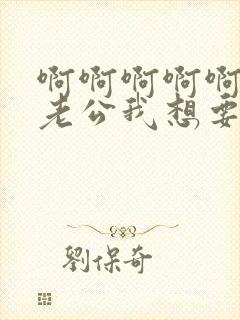 啊啊啊啊啊
老公我想要
劉保奇